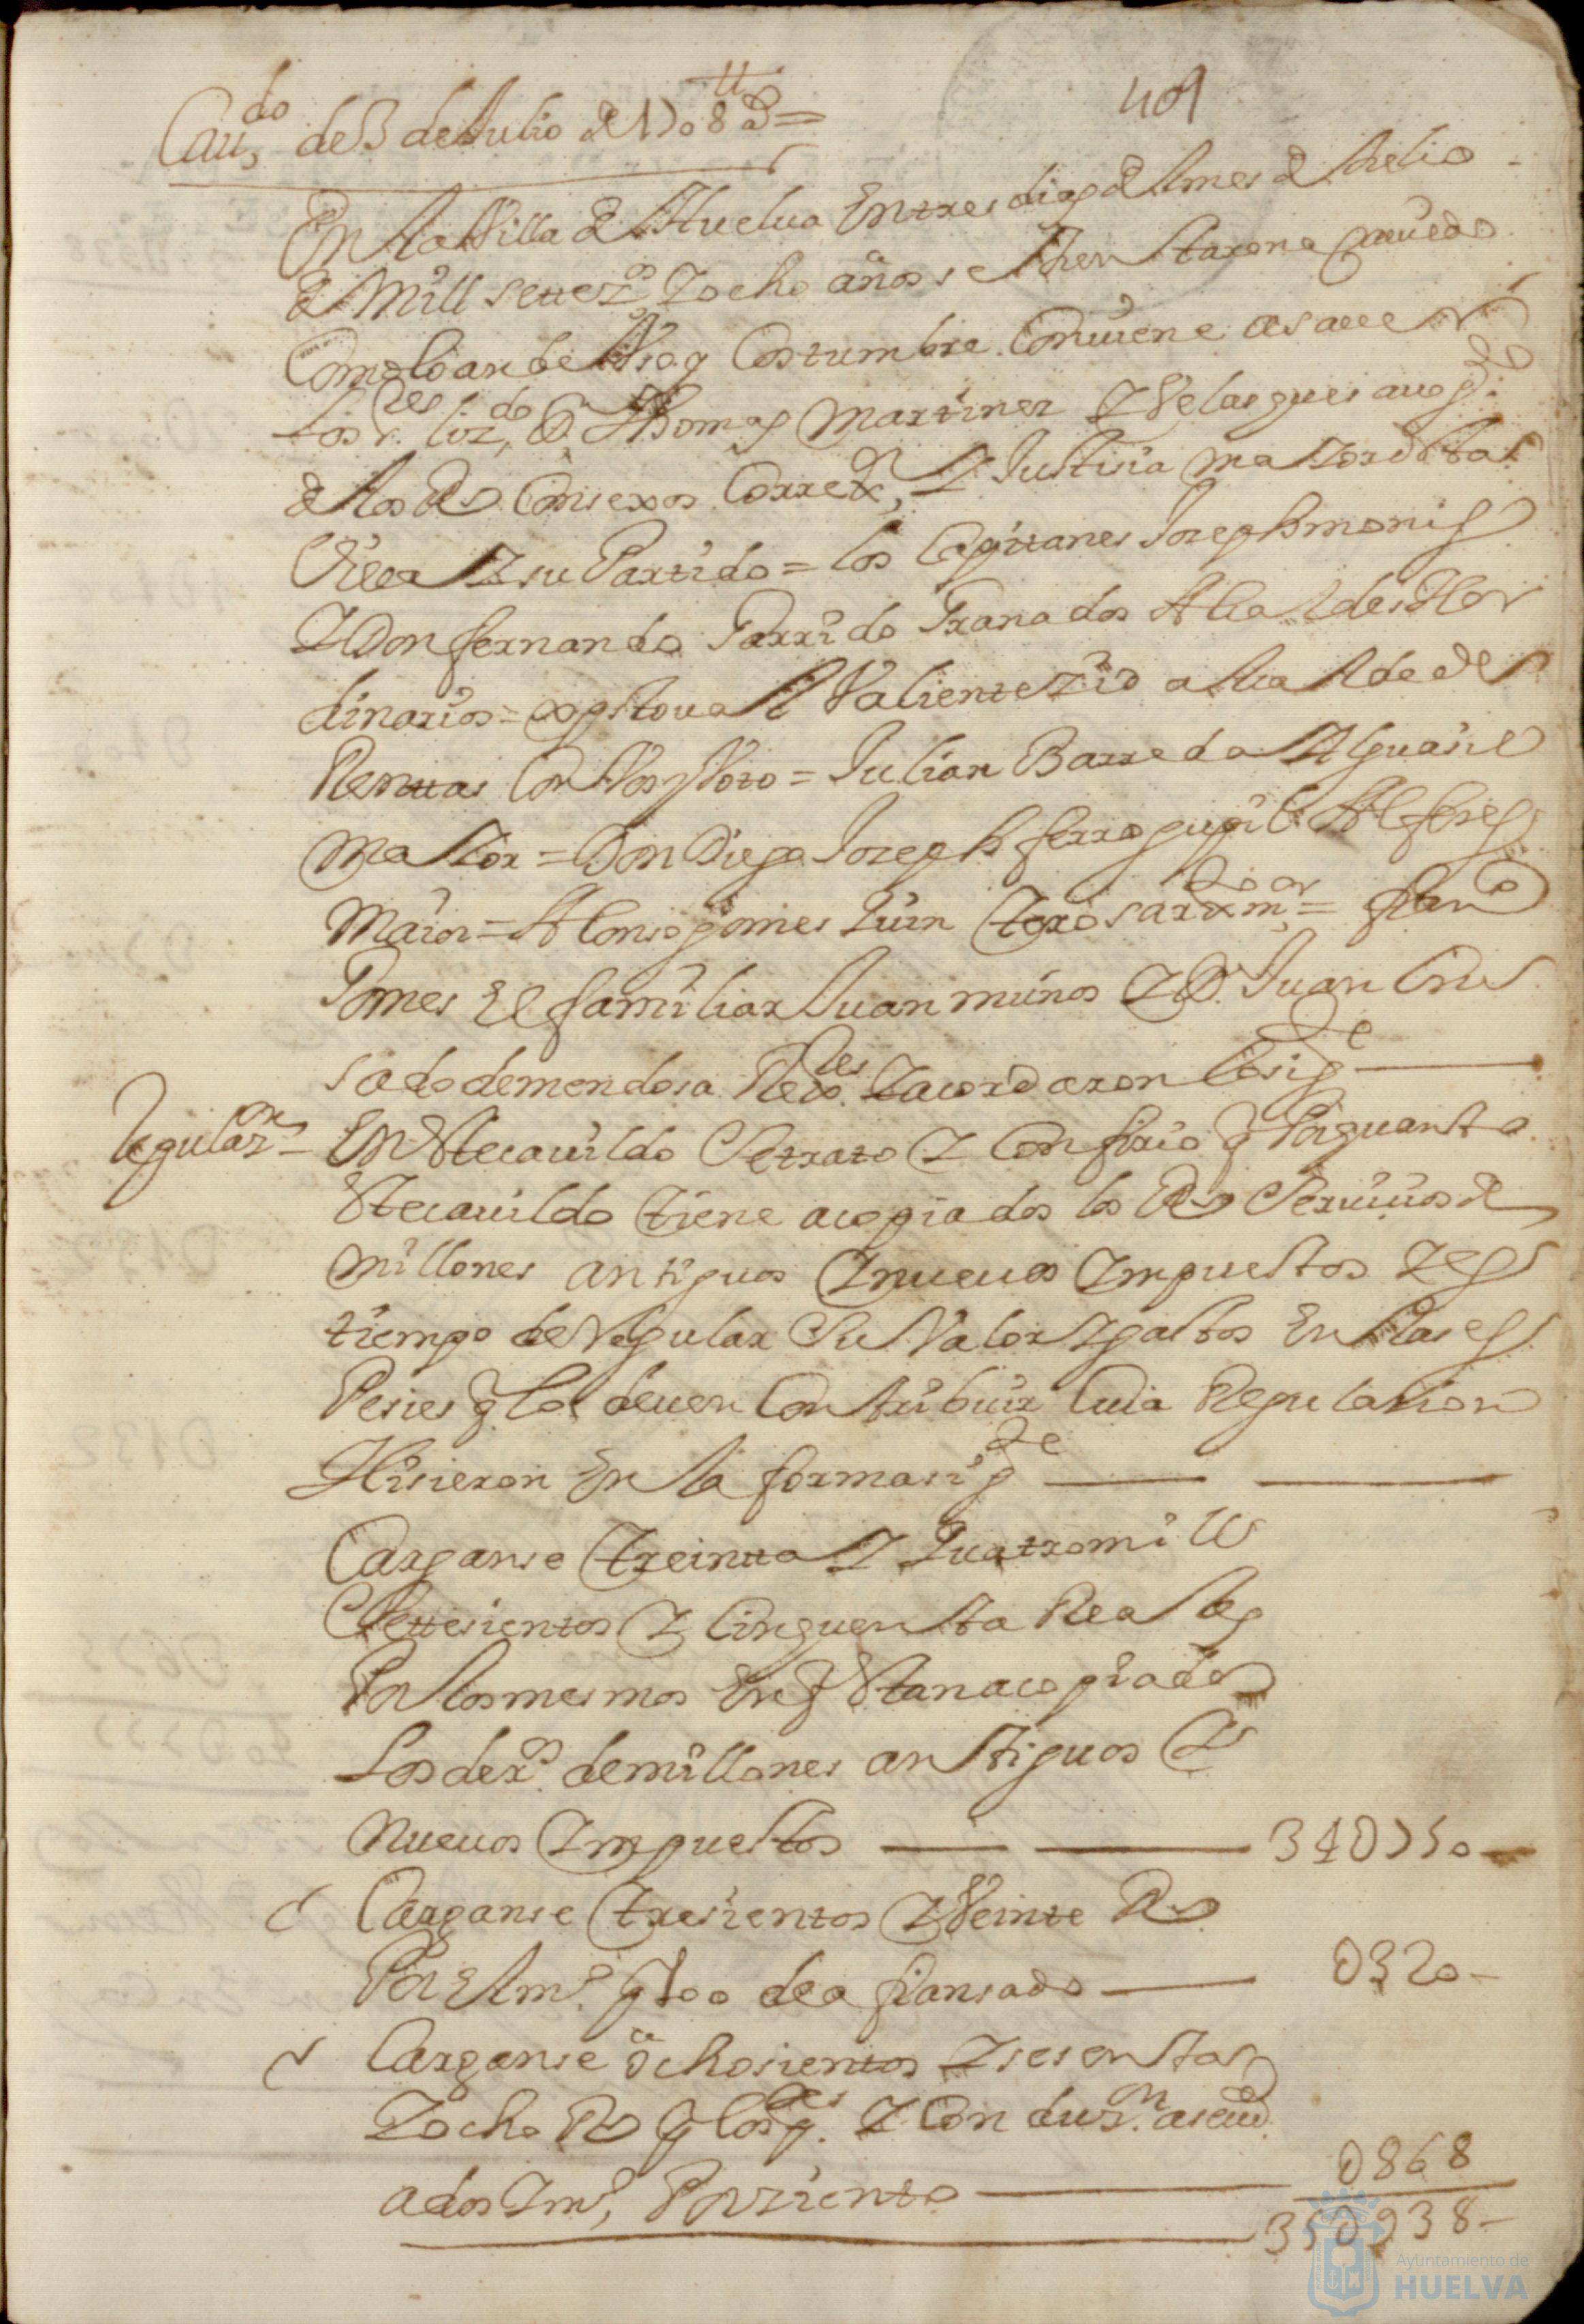 409
Cauᵈᵒ de 3 de Julio de 1708 aᵒˢ =
En la Villa de Huelua En tres dias del mes de Julio
de Mill seteᶻᵒˢ y ocho años se Juntaron a Cauildo
Como lo an de Vso y Costumbre Conuiene asauer
Los rᵉˢ lizᵈᵒ D. Thomas Martines y Velasques auogᵈᵒ
de los Rs Consexos Correxᵒʳ y Justisia mayor de sta
Villa y su Partido = los Capitanes Joseph monis
y Don fernando Garrido Granados Alcaldes Hor
dinarios = Xpstoual Valiente alcalde de
Rentas Con Vos y Voto = Julian Barreda Alguasil
mayor = Don Diego Joseph ferro Alferes
Maior = Alonso gomes =
Gomes El familiar Juan munos y D. Juan Cru
sado de mendosa Rexᵉˢ y acordaron lo sigᵗᵉ
Regulazᵒⁿ = En Ste cauildo Se trato y Confirio q Por quanto
Ste cauildo tiene acopiados los Rs Seruiuios de
millones antiguos y nueuos ympuestos y es
tiempo de Regular Su Valor y gastos En las es
Pesies q los deuen Contribuir Cuia Regulasion
Hisieron En la forma sigᵗᵉ
Carganse treinta y Quatro mill
Setesientos y Cinquenta Reales
Por los mesmos En q Stan acopiados
Los derᵒˢ de millones antiguos y
nueuos ympuestos 34U750
Carganse tresientos y Veinte Rs
Por El mᵒ de a fiansado U320
Carganse ochosientos y sesenta
y ocho Rs q los y Con duzᵒⁿ
ados ymᵒ Por ziento U868
35U938
Ayuntamiento de
HUELVA